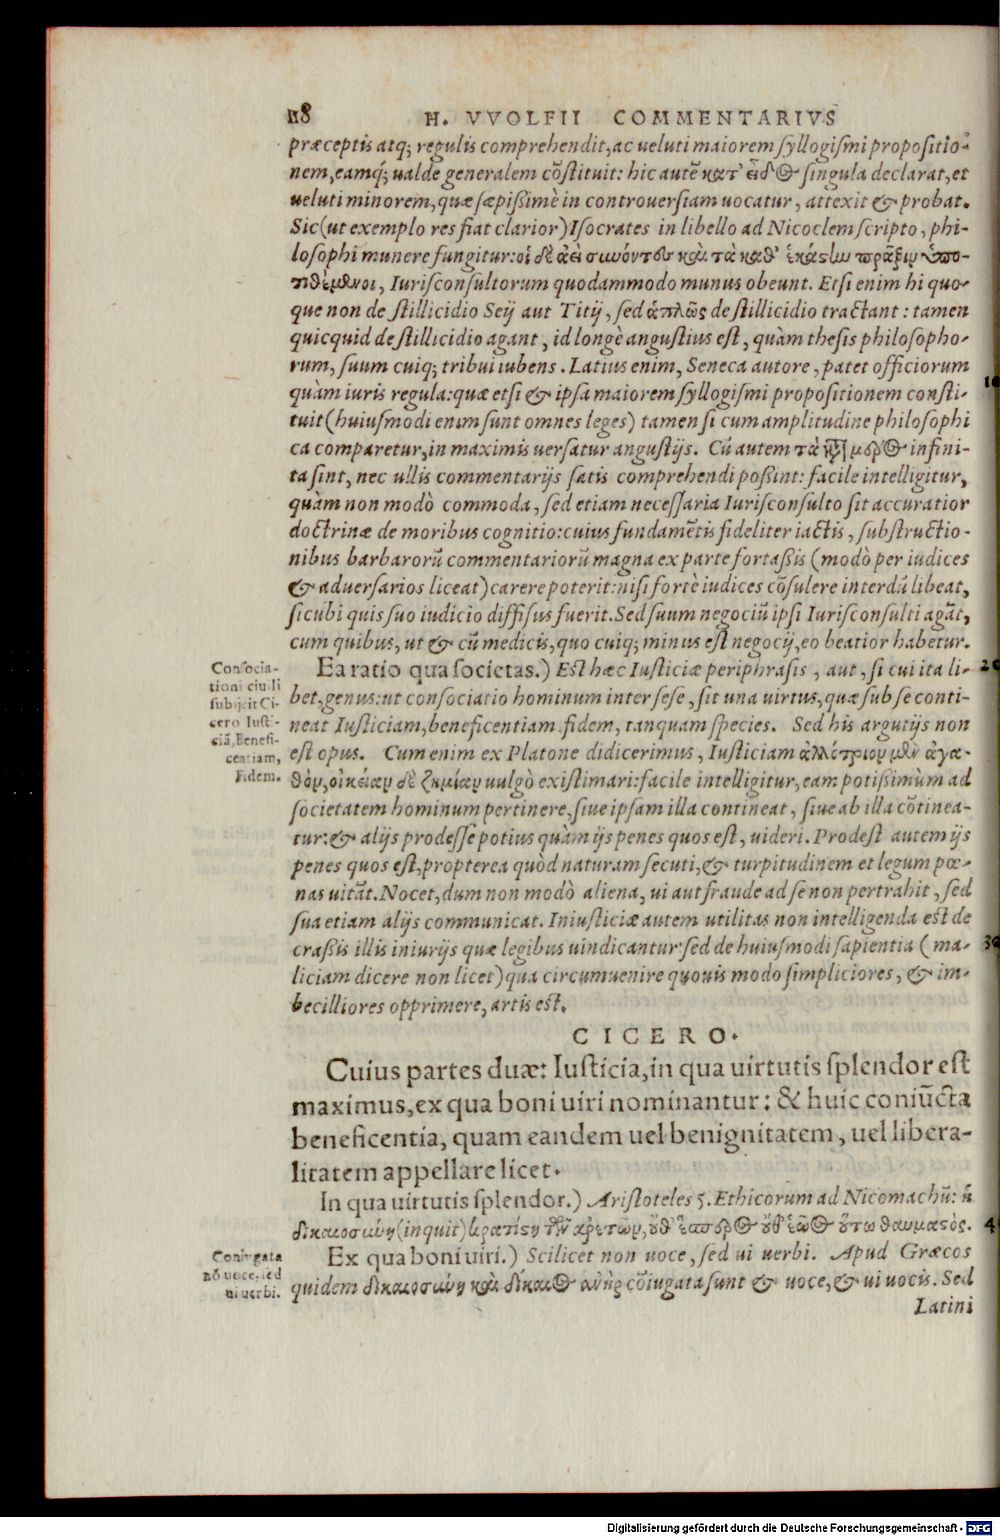 118 H. VVOLFII COMMENTARIVS
præceptis atq; regulis comprehendit, ac ueluti maiorem syllogismi propositio-
nem, eamq́; ualde generalem cōstituit: hic autē κατ' εἶδ@ singula declarat, et
ueluti minorem, quæ sæpißimè in controuersiam uocatur, attexit & probat.
Sic (ut exemplo res fiat clarior) Isocrates in libello ad Nicoclem scripto, phi-
losophi munere fungitur: οἱ δὲ ἀεὶ συνόντες καὶ τὰ καθ' ἑκάστην πρᾶξιν ὑπο-
τιθέμενοι, Iurisconsultorum quodammodo munus obeunt. Etsi enim hi quo-
que non de stillicidio Seij aut Titij, sed ἁπλῶς de stillicidio tractant: tamen
quicquid de stillicidio agant, id longè angustius est, quàm thesis philosopho-
rum, suum cuiq; tribui iubens. Latius enim, Seneca autore, patet officiorum
10
quàm iuris regula: quæ etsi & ipsa maiorem syllogismi propositionem consti-
tuit (huiusmodi enim sunt omnes leges) tamen si cum amplitudine philosophi
ca comparetur, in maximis uersatur angustijs. Cū autem τὰ κατὰ μέρος infini-
ta sint, nec ullis commentarijs satis comprehendi poßint: facile intelligitur,
quàm non modò commoda, sed etiam necessaria Iurisconsulto sit accuratior
doctrinæ de moribus cognitio: cuius fundamētis fideliter iactis, substructio-
nibus barbarorū commentariorū magna ex parte fortaßis (modò per iudices
& aduersarios liceat) carere poterit: nisi fortè iudices cōsulere interdū libeat,
sicubi quis suo iudicio diffisus fuerit. Sed suum negociū ipsi Iurisconsulti agāt,
cum quibus, ut & cū medicis, quo cuiq; minus est negocij, eo beatior habetur.
Consocia-
tioni ciuili
subijcit Ci-
cero Iusti-
ciā, Benefi-
centiam,
Fidem.
Ea ratio qua societas.) Est hæc Iusticiæ periphrasis, aut, si cui ita li-
20
bet, genus: ut consociatio hominum inter sese, sit una uirtus, quæ sub se conti-
neat Iusticiam, beneficentiam, fidem, tanquam species. Sed his argutijs non
est opus. Cum enim ex Platone didicerimus, Iusticiam ἀλλότριον μὲν ἀγα-
θὸν, οἰκείαν δὲ ζημίαν uulgò existimari: facile intelligitur, eam potißimùm ad
societatem hominum pertinere, siue ipsam illa contineat, siue ab illa cōtinea-
tur: & alijs prodesse potius quàm ijs penes quos est, uideri. Prodest autem ijs
penes quos est, propterea quòd naturam secuti, & turpitudinem et legum pœ-
nas uitāt. Nocet, dum non modò aliena, ui aut fraude ad se non pertrahit, sed
sua etiam alijs communicat. Iniusticiæ autem utilitas non intelligenda est de
craßis illis iniurijs quæ legibus uindicantur: sed de huiusmodi sapientia (ma-
30
liciam dicere non licet) qua circumuenire quouis modo simpliciores, & im-
becilliores opprimere, artis est.
CICERO.
Cuius partes duæ: Iusticia, in qua uirtutis splendor est
maximus, ex qua boni uiri nominantur: & huic coniūcta
beneficentia, quam eandem uel benignitatem, uel libera-
litatem appellare licet.
In qua uirtutis splendor.) Aristoteles 5. Ethicorum ad Nicomachū: ἡ
δικαιοσύνη (inquit) κρατίστη τῶν ἀρετῶν, οὔθ' ἕσπερος οὔθ' ἑῷος οὕτω θαυμαστός.
40
Coniugata
nō uoce, sed
ui uerbi.
Ex qua boni uiri.) Scilicet non uoce, sed ui uerbi. Apud Græcos
quidem δικαιοσύνη καὶ δίκαιος ἀνὴρ cōiugata sunt & uoce, & ui uocis. Sed
Latini
Digitalisierung gefördert durch die Deutsche Forschungsgemeinschaft - DFG